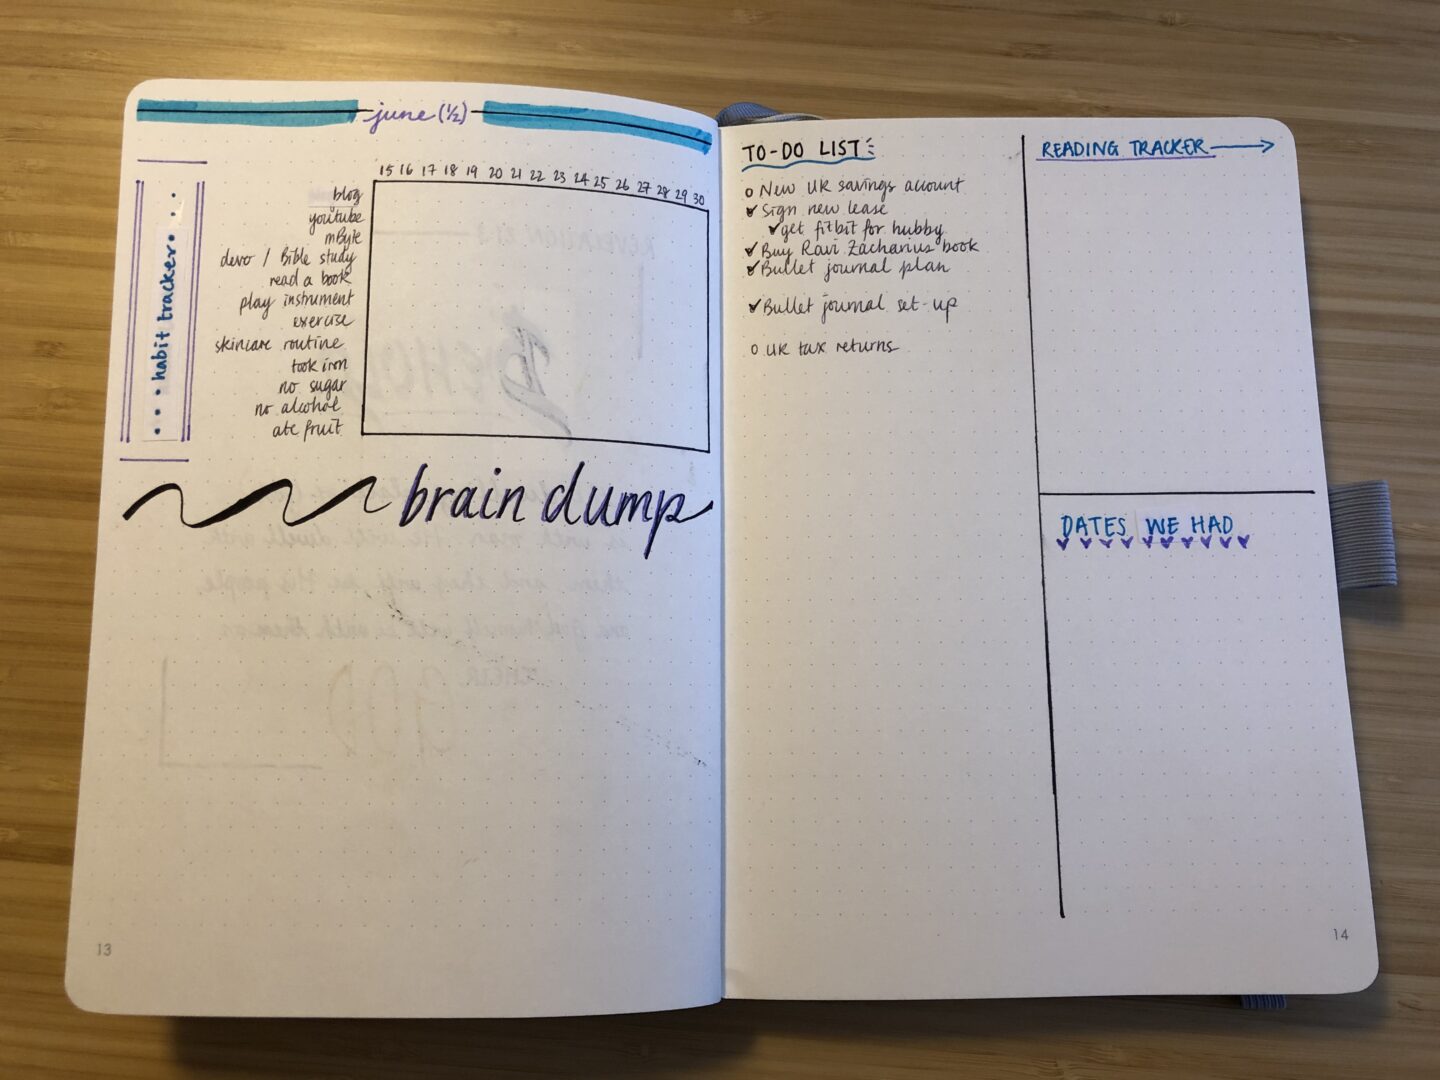 june (½)
habit tracker
15 16 17 18 19 20 21 22 23 24 25 26 27 28 29 30
blog
youtube
mByte
devo / Bible study
read a book
play instrument
exercise
skincare routine
took iron
no sugar
no alcohol
ate fruit
brain dump
13
TO-DO LIST
New UK savings account
Sign new lease
get fitbit for hubby
Buy Ravi Zacharius book
Bullet journal plan
Bullet journal set-up
UK tax returns
READING TRACKER
DATES WE HAD
14